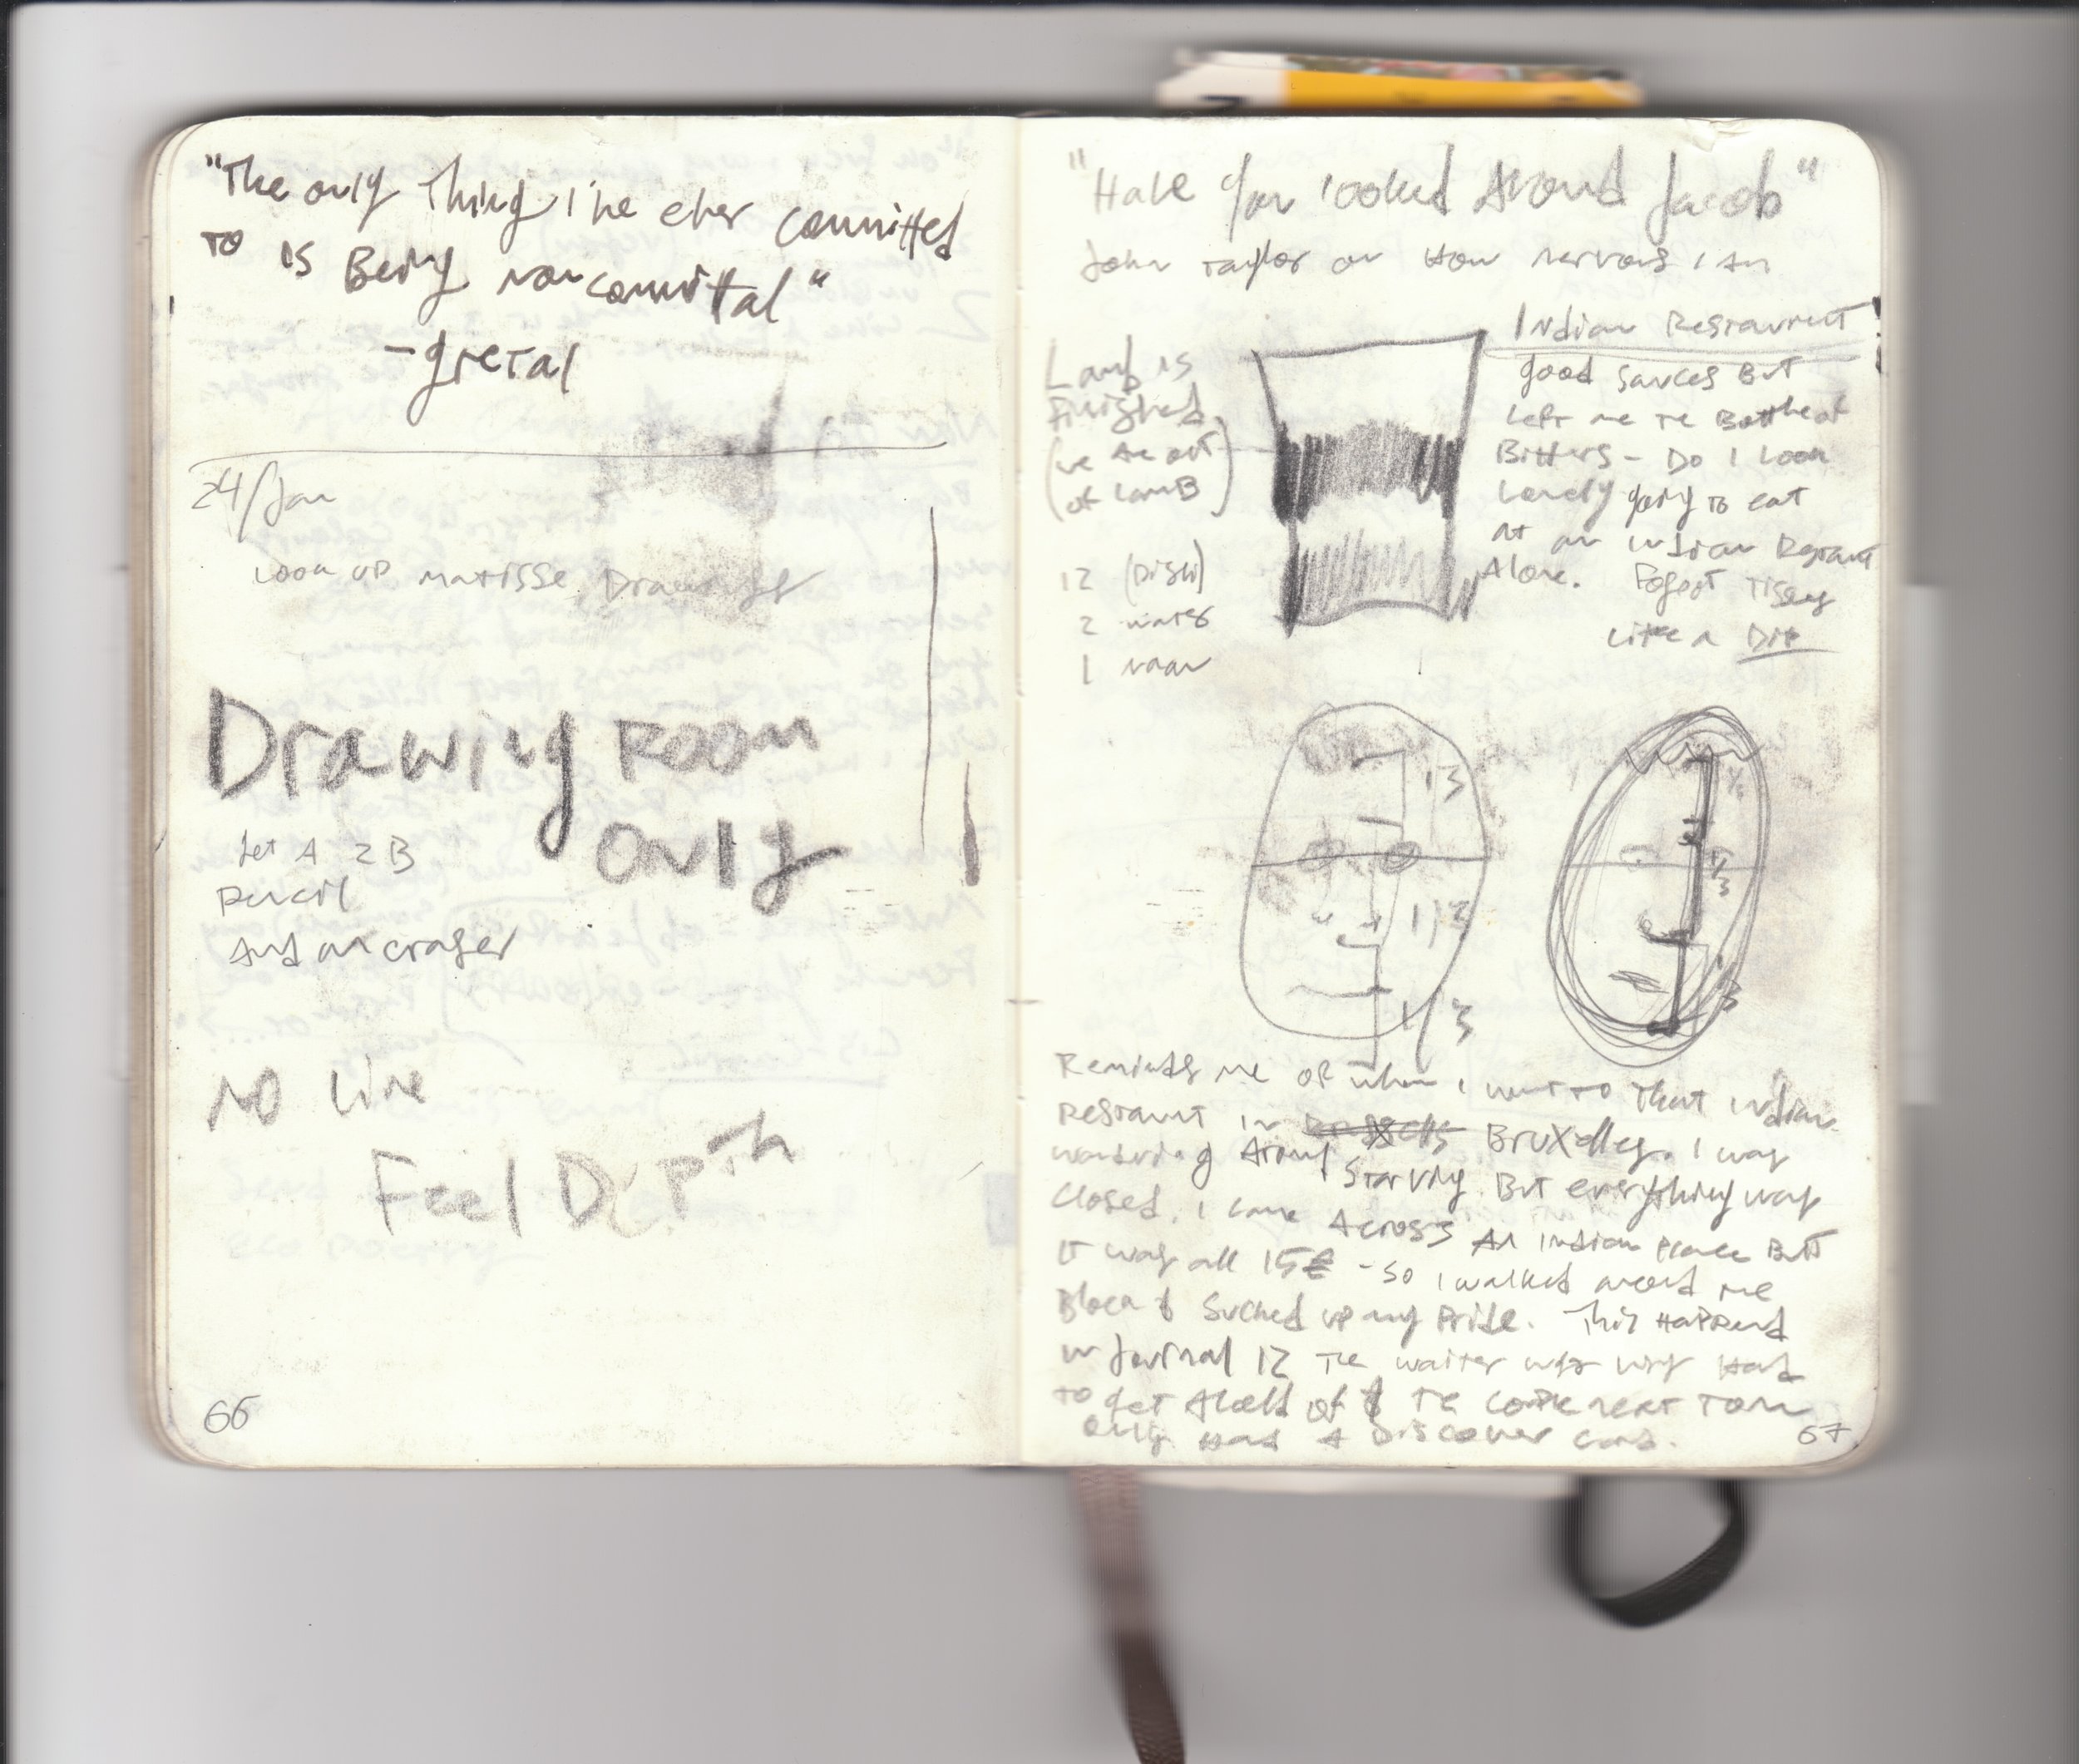 "The only Thing I've ever committed
TO IS Being noncommittal"
-gretal
24/Jan
Look up matisse Drawings
Drawing Room
Only
Get A 2B
Pencil
And an eraser
NO Line
Feel Depth
66
"Have you looked Around Jacob"
John Taylor on How nervous I Am
Indian Restaurent
Lamb is
Finished
(we Are out
of Lamb)
12 (Dish)
2 water
1 naan
good sauces But
Left me The Bottle of
Bitters - Do I Look
Lonely going to eat
at an Indian
Alone.
Like a
1/3
1/2
1/3
1/3
1/3
Reminds me of when I went TO That Indian
in Bruxelles. I was
Around Starving But everything was
Closed. I came Across An Indian place But
IT was all 15€ - so I walked around the
Block & Sucked up my Pride. This Happened
in Journal 12 The waiter
to get Ahold of
only Had A Discover card.
67